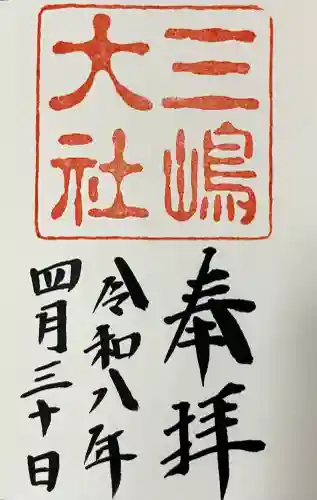 三嶋
大社
奉拝
令和八年
四月三十日